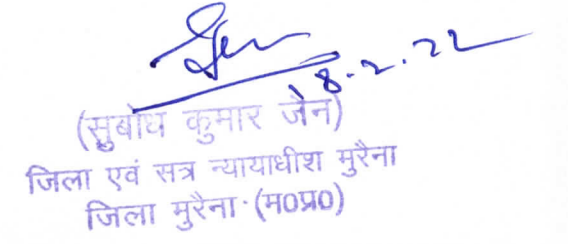 18.2.22
(सुबोध कुमार जैन)
जिला एवं सत्र न्यायाधीश मुरैना
जिला मुरैना (म०प्र०)